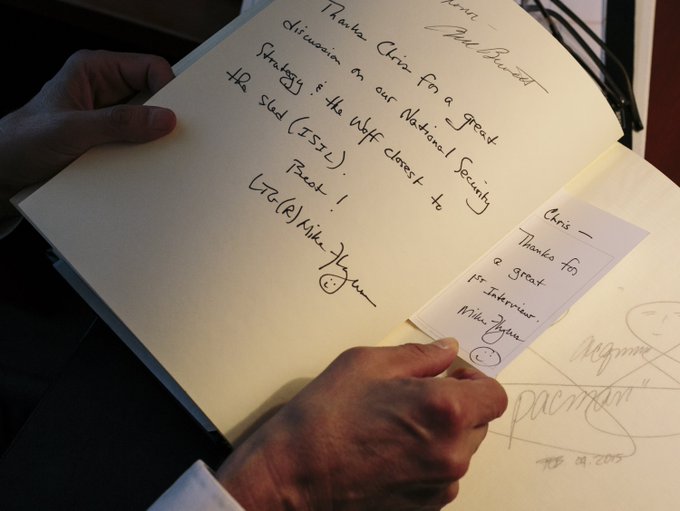 Thanks Chris for a great
discussion on our National Security
Strategy & the Wolf closest to
the sled (ISIL).
Best!
LTG(R) Mike Flynn
Chris —
Thanks for
a great
1st Interview.
Mike Flynn
pacman"
2015